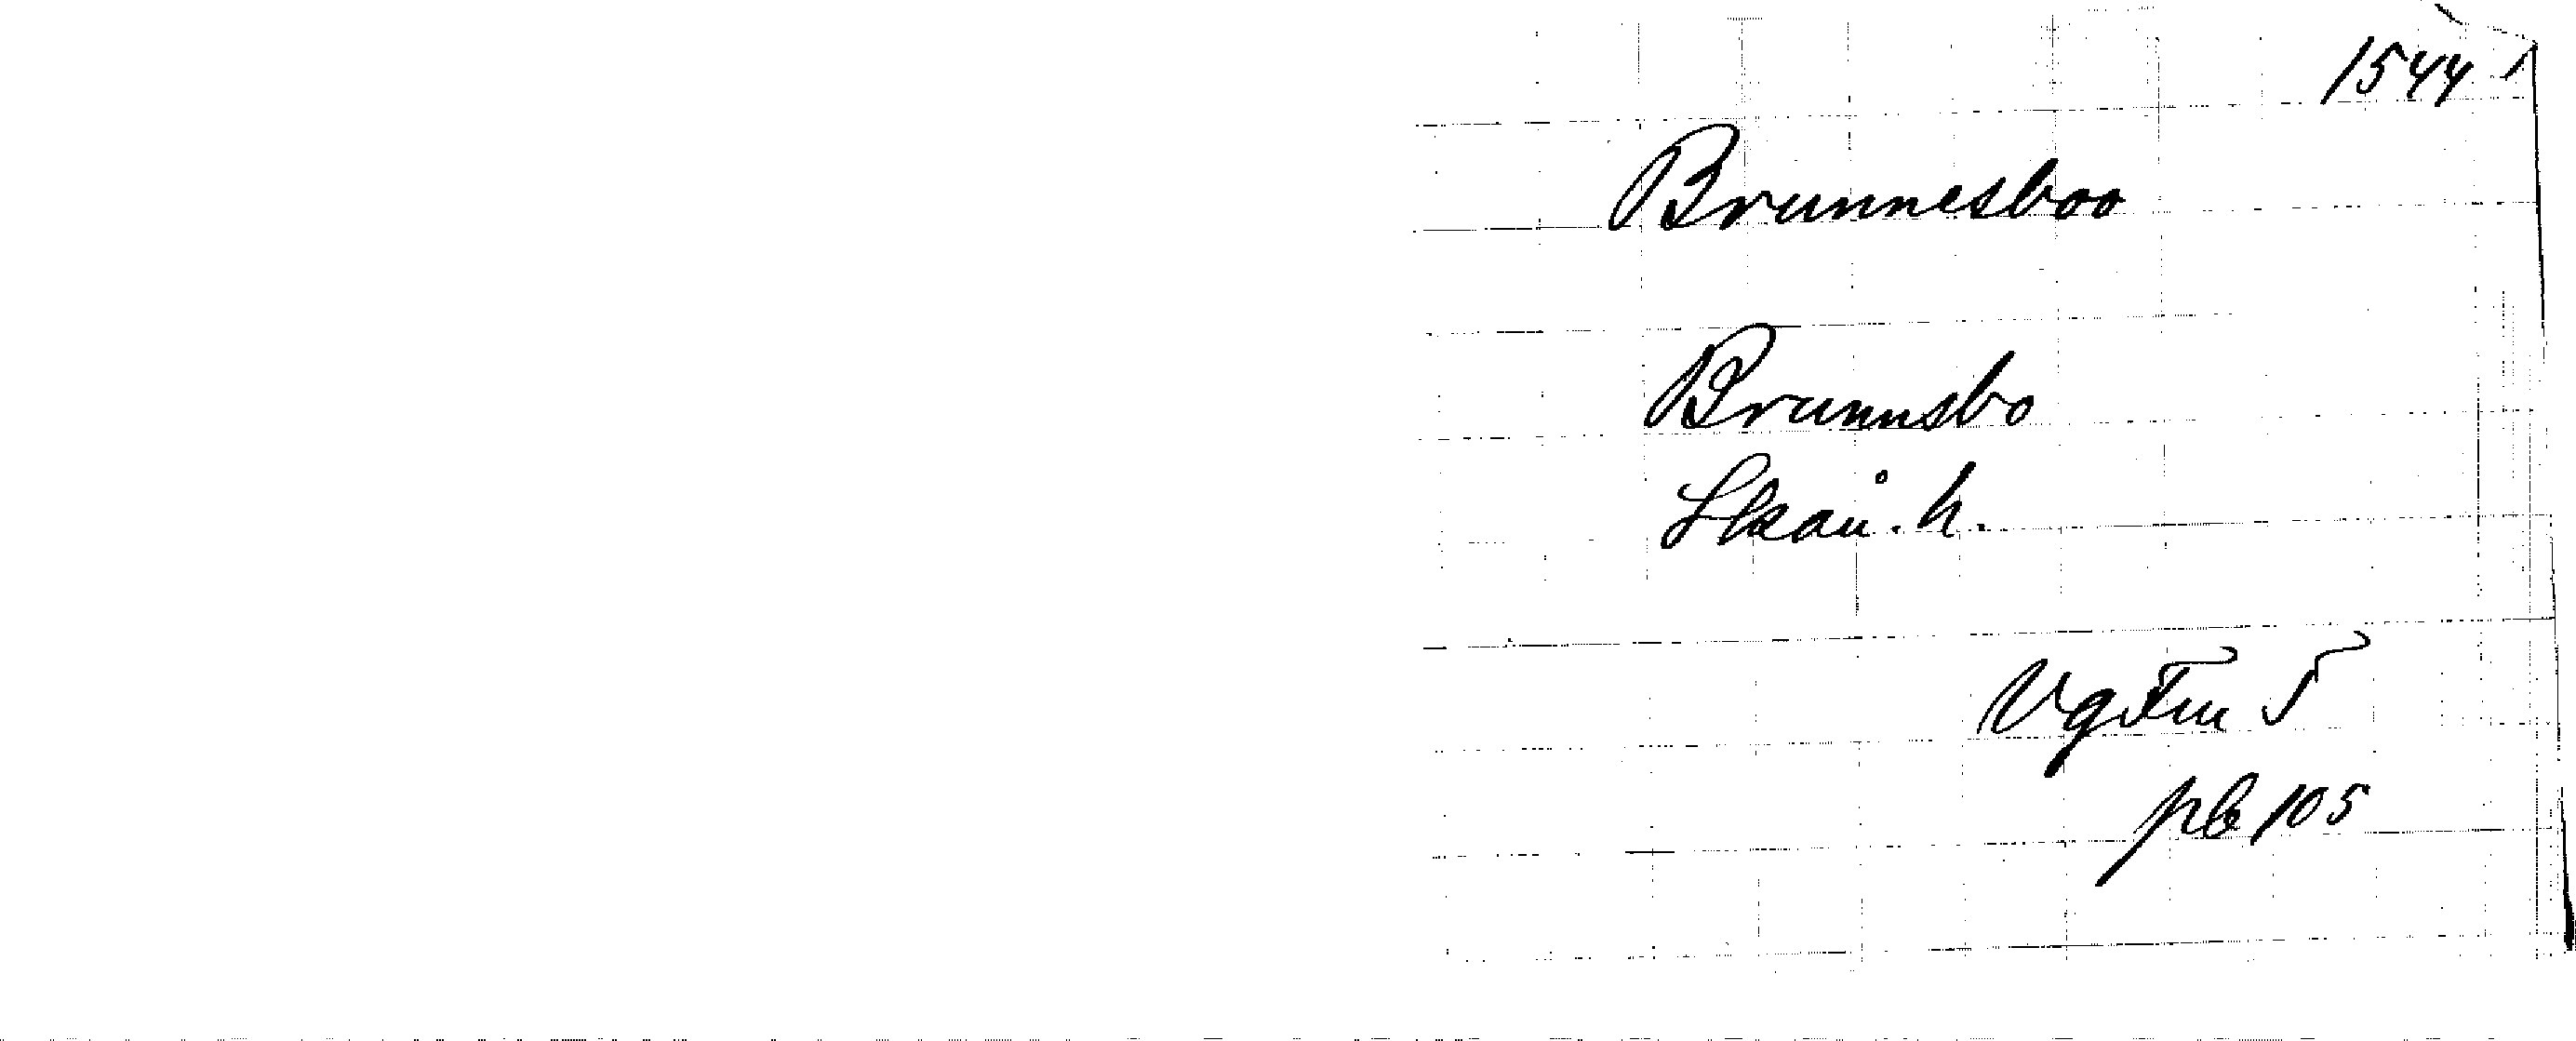 1544
Brunnesboo
Brunnsbo
Skån. h.
VgFm 5
pb 105